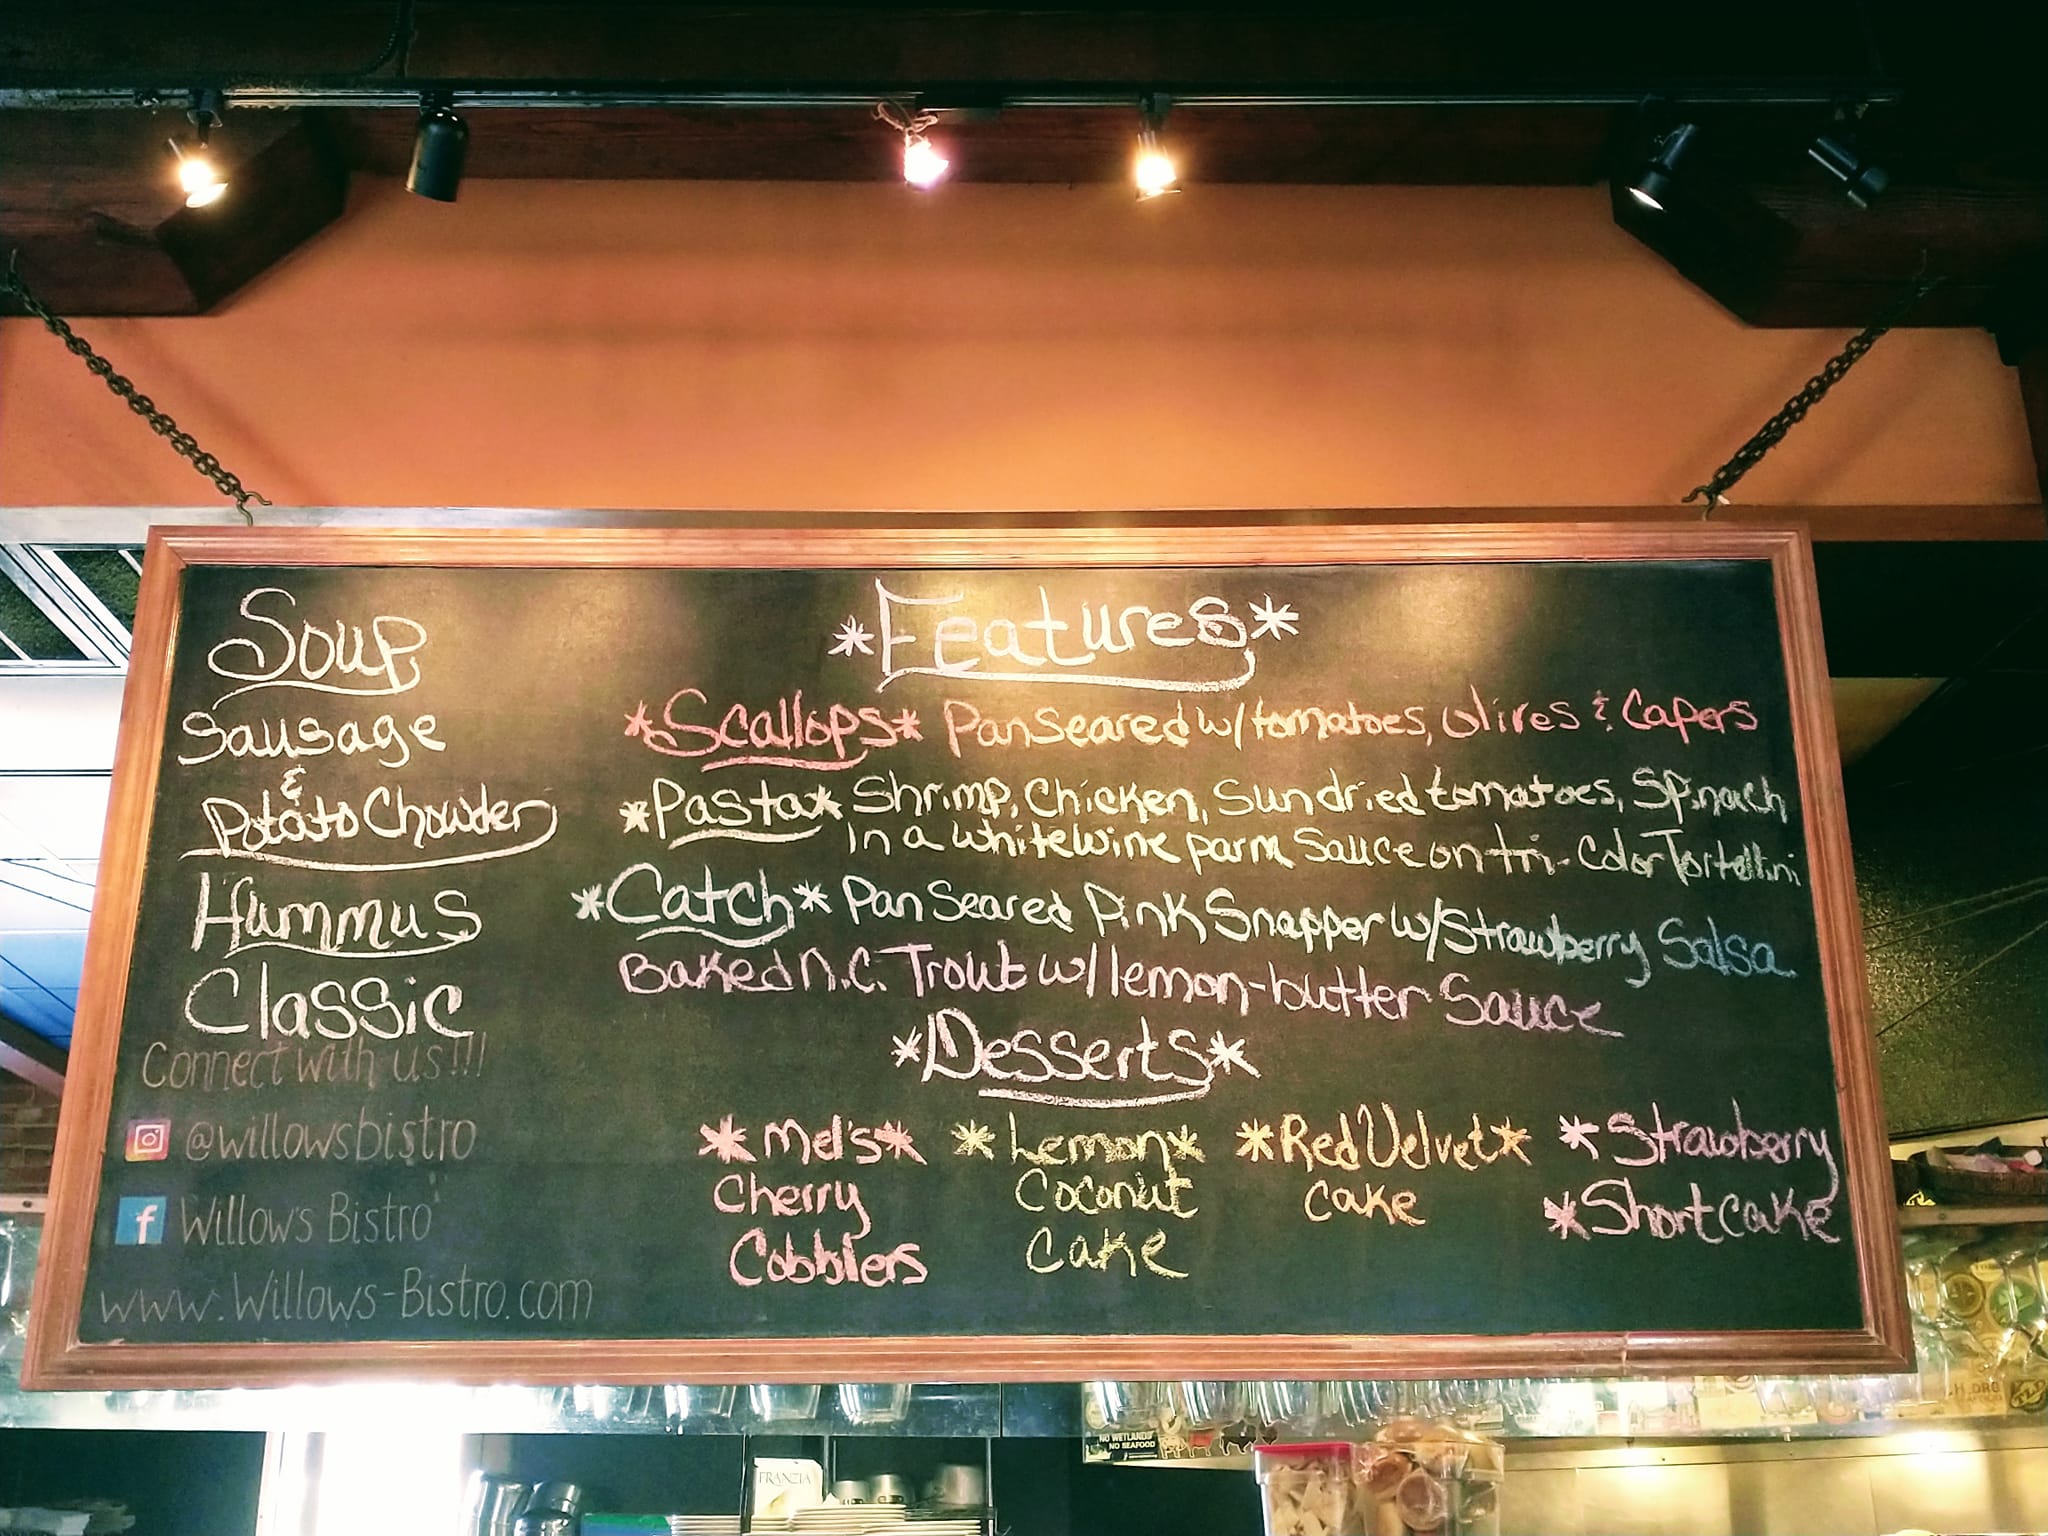 Soup
Sausage
&
Potato Chowder
Hummus
Classic
Connect with us!!!
@willowsbistro
f Willow's Bistro
www.Willows-Bistro.com
*Features*
*Scallops* Pan Seared w/tomatoes, olives & Capers
*Pasta* Shrimp, Chicken, Sundried tomatoes, Spinach
in a white wine parm Sauce on tri-color Tortellini
*Catch* Pan Seared Pink Snapper w/Strawberry Salsa
Baked N.C. Trout w/lemon-butter Sauce
*Desserts*
*Mel's*
Cherry
Cobblers
*Lemon*
Coconut
Cake
*Red Velvet*
Cake
*Strawberry
*Shortcake
NO WETLANDS
NO SEAFOOD
FRANZIA